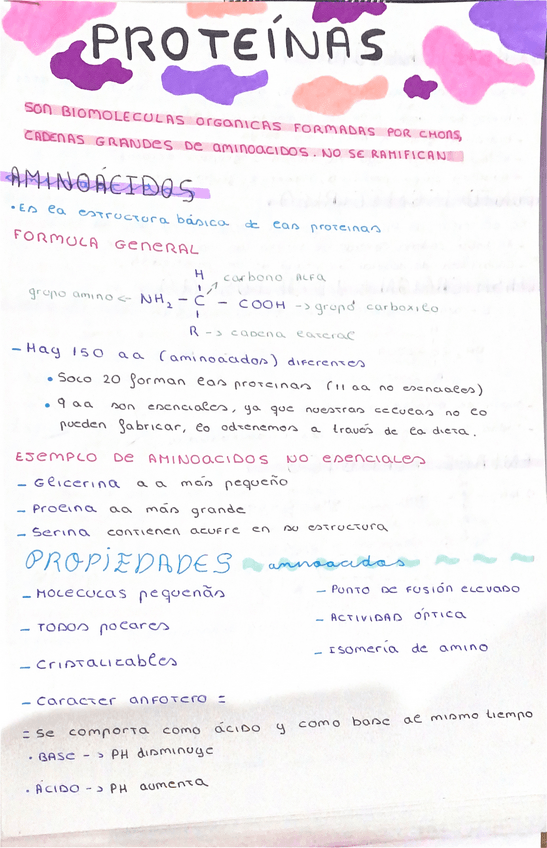 PROTEÍNAS
SON BIOMOLECULAS ORGANICAS FORMADAS POR CHONS,
CADENAS GRANDES DE AMINOACIDOS. NO SE RAMIFICAN
AMINOÁCIDOS
• ES la estructura básica de las proteinas
FORMULA GENERAL
H carbono ALFA
grupo amino <- NH2 - C - COOH -> grupo carboxilo
R -> cadena lateral
- Hay 150 aa (aminoacidos) diferentes
• Solo 20 forman las proteinas (11 aa no esenciales)
• 9 aa son esenciales, ya que nuestras celulas no lo
pueden fabricar, lo odtenemos a través de la dieta.
EJEMPLO DE AMINOACIDOS NO esenciales
- Glicerina a a más pequeño
- Prolina aa más grande
- Serina contienen azufre en su estructura
PROPIEDADES aminoacidos
- MOLECULAS pequeñas
- TODOS polares
- Cristalizables
- Caracter anfotero =
- PUNTO DE FUSIÓN ELEVADO
- ACTIVIDAD ÓPTICA
- Isomería de amino
= Se comporta como ácido y como base al mismo tiempo
• BASE --> PH disminuye
• ÁCIDO --> PH aumenta